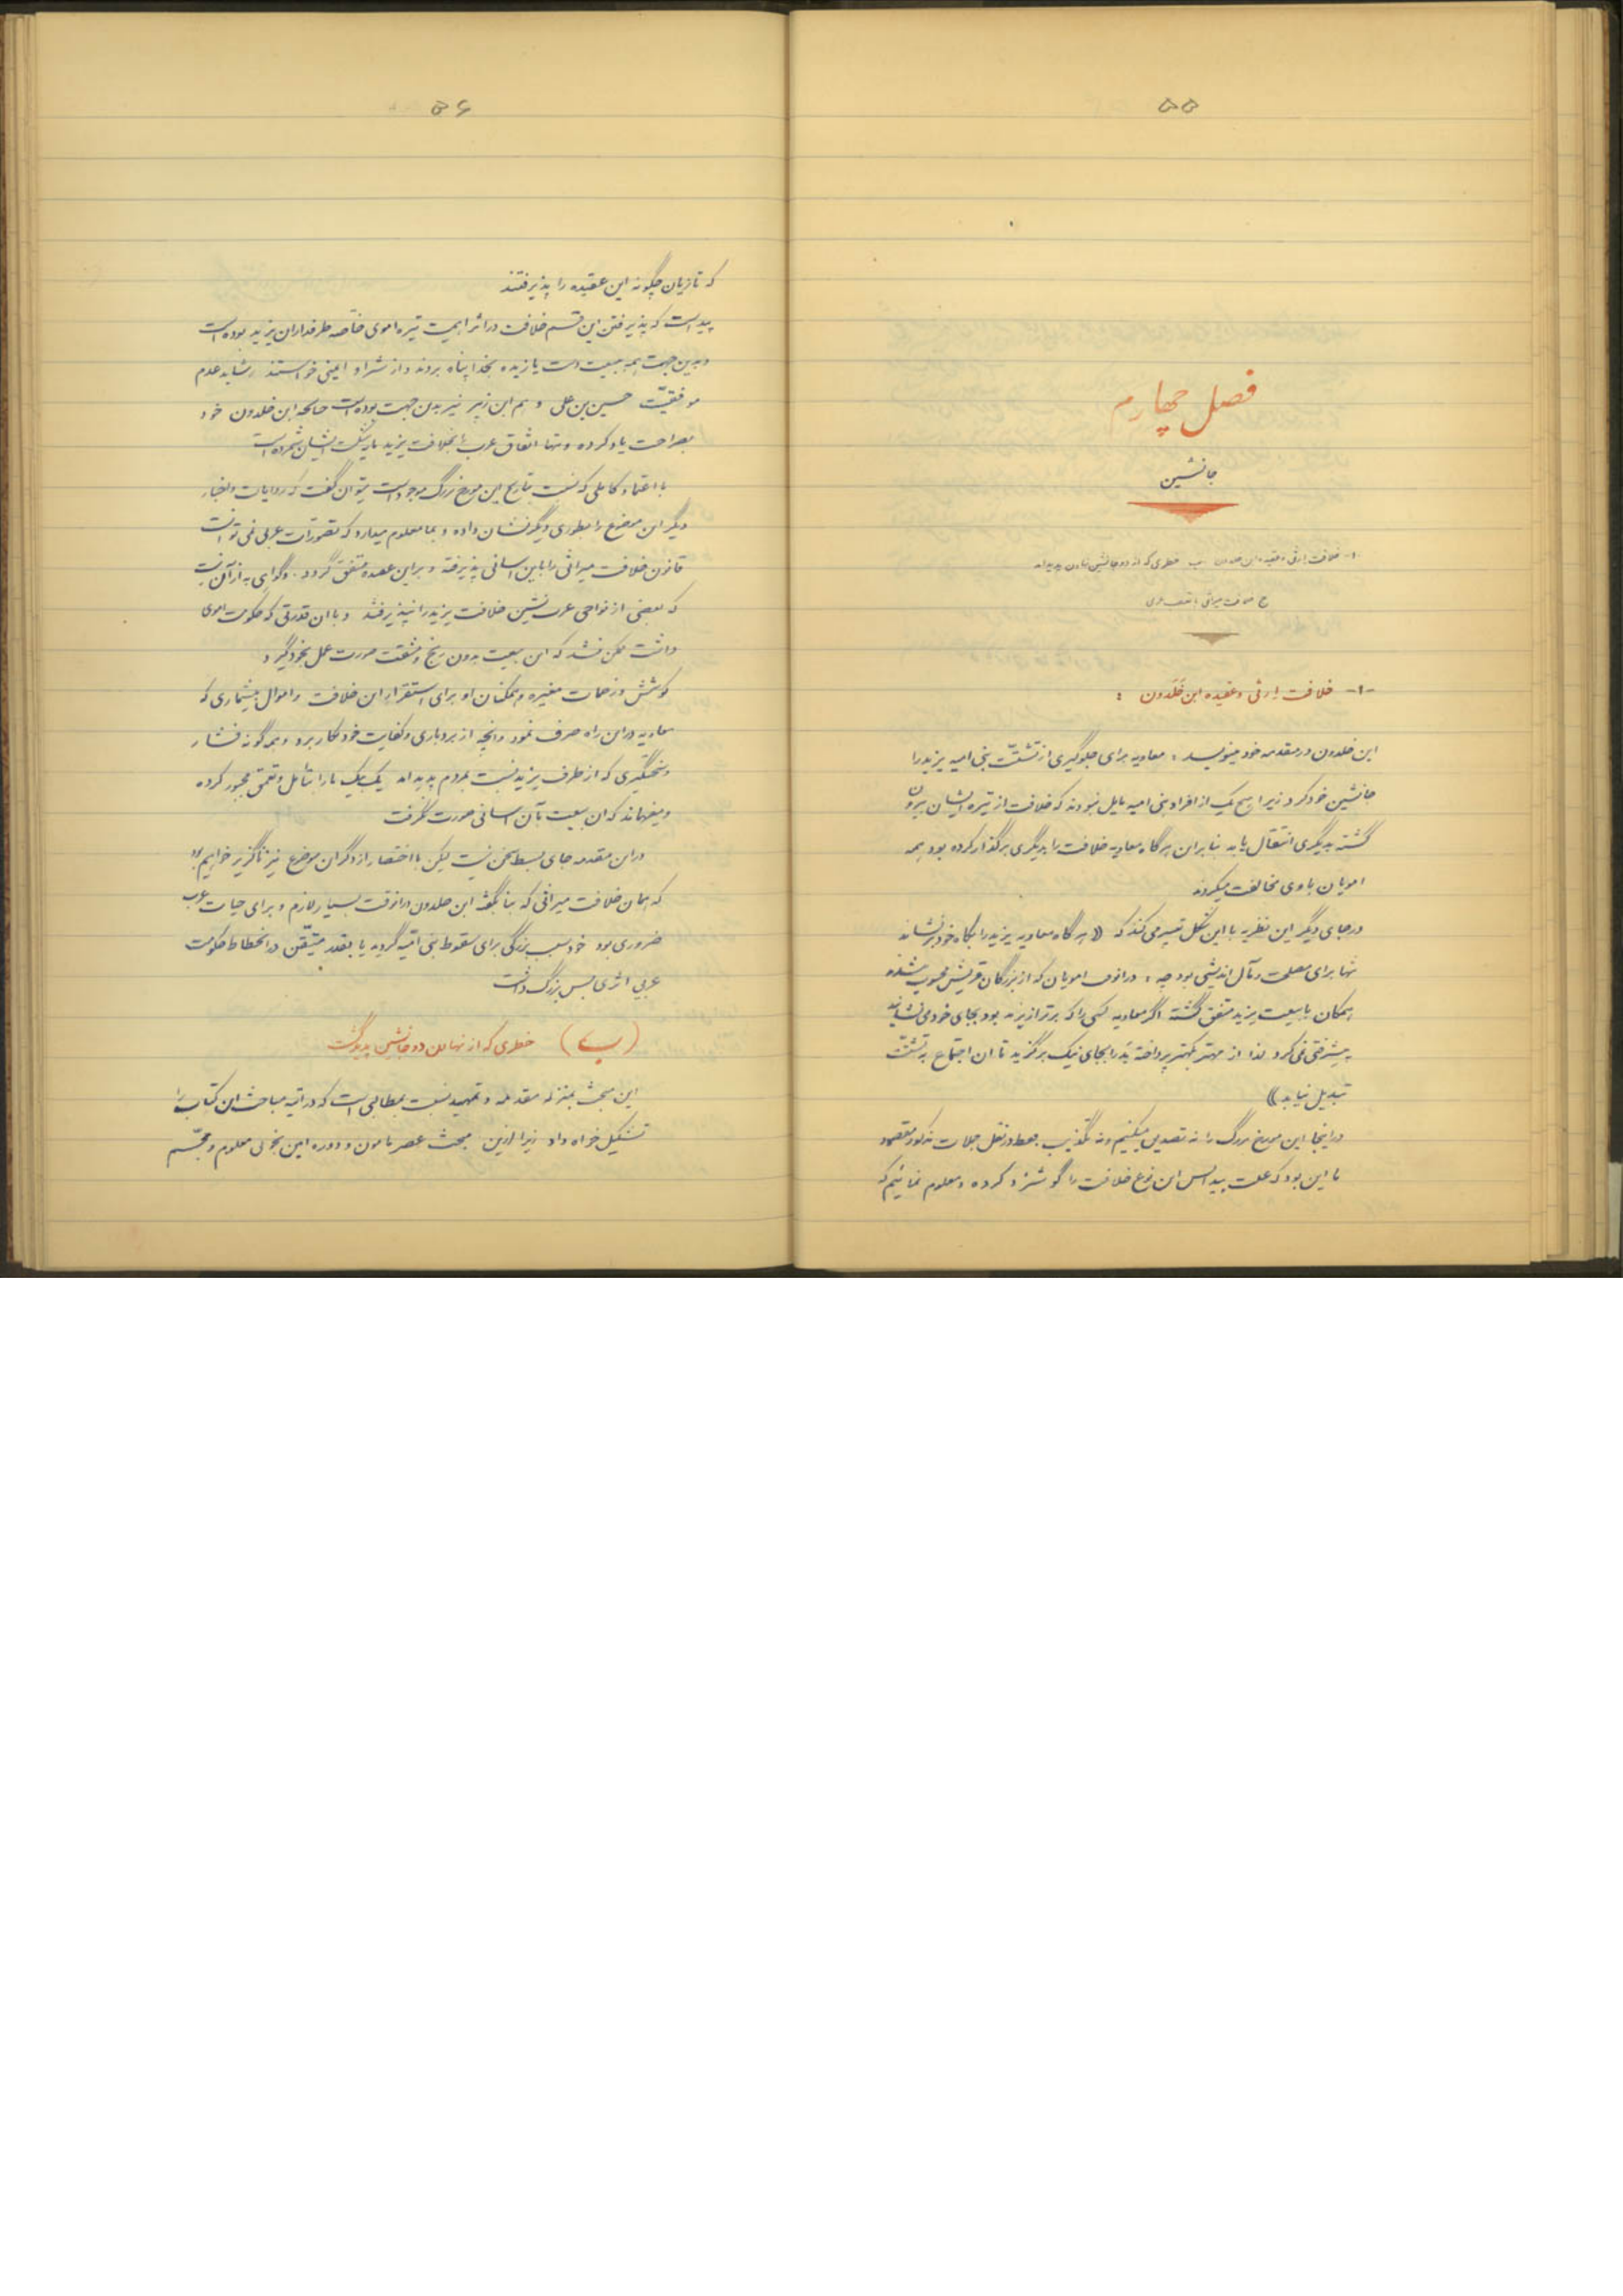 ۵۵
فصل چهارم
جانشین
۱- خلافت ارثی و عقیده ابن خلدون ب خطری که از دو جانشین نهادن پدید آمد
ج خلافت میراثی با تصور عربی
-۱- خلافت ارثی و عقیده ابن خلدون :
ابن خلدون در مقدمه خود مینویسد : معاویه برای جلوگیری از تشتت بنی امیه یزید را
جانشین خود کرد زیرا هیچ یک از افراد بنی امیه مایل نبودند که خلافت از تیره ایشان بیرون
گشته بدیگری انتقال یابد بنابران هرگاه معاویه خلافت را بدیگری برگذار کرده بود همه
امویان با وی مخالفت میکردند
در جای دیگر این نظریه با این شکل تفسیر می کند که (( هرگاه معاویه یزید را بگاه خود برنشاند
تنها برای مصلحت و مآل اندیشی بود چه : در آنوقت امویان که از بزرگان قریش محسوب میشدند
همگان با بیعت یزید متفق گشته اگر معاویه کسی را که برتر از یزید بود بجای خود می نشانید
پیشرفتی نمی کرد لذا از مهتر بکهتر پرداخته بد را بجای نیک برگزید تا ان اجتماع به تشتت
تبدیل نیابد ))
در اینجا این مورخ بزرگ را نه تصدیق میکنیم و نه تکذیب فقط در نقل جملات مذکور مقصود
ما این بود که علت پیدایش ان نوع خلافت را گوشزد کرده و معلوم نمائیم که
۵۶
که تازیان چگونه این عقیده را پذیرفتند
پیداست که پذیرفتن این قسم خلافت در اثر اهمیت تیره اموی خاصه طرفداران یزید بوده است
و بدین جهت همه ببیعت دست یازیده بخدا پناه بردند و از شر او ایمنی خواستند و شاید عدم
موفقیت حسین بن علی و هم ابن زبیر نیز بدین جهت بوده است چنانکه ابن خلدون خود
بصراحت یاد کرده و تنها اتفاق عرب را بخلافت یزید مایه شکست ایشان شمرده است
با اعتماد کاملی که نسبت بتاریخ این مورخ بزرگ موجود است میتوان گفت که روایات و اخبار
دیگر این موضوع را بطوری دیگر نشان داده و بما معلوم میدارد که تصورات عربی نمی توانست
قانون خلافت میراثی را باین آسانی پذیرفته و براین عقیده متفق گردد . و گواهی به از آن نیست
که بعضی از نواحی عرب نشین خلافت یزید را نپذیرفتند و با ان قدرتی که حکومت اموی
داشت ممکن نشد که این بیعت بدون رنج و مشقت صورت عمل بخود گیرد
کوشش و زحمات مغیره و همکنان او برای استقرار این خلافت و اموال بیشماری که
معاویه دراین راه صرف نمود و آنچه از بردباری و کفایت خود بکار برد و همه گونه فشار
و سختگیری که از طرف یزید نسبت بمردم پدید آمد یک یک ما را بتأمل و تعمق مجبور کرده
و میفهماند که ان بیعت بآن آسانی صورت نگرفت
دراین مقدمه جای بسط سخن نیست لیکن با اختصار از ذکر این موضوع نیز ناگزیر خواهیم بود
که همان خلافت میراثی که بنا بگفته ابن خلدون درانوقت بسیار لازم و برای حیات عرب
ضروری بود خود سبب بزرگی برای سقوط بنی امیه گردید یا بقدر متیقن در انحطاط حکومت
عربی اثری بس بزرگ داشت
( ب ) خطری که از نهادن دو جانشین پدید گشت
این مبحث بمنزله مقدمه و تمهید نسبت بمطالبی است که در آتیه مباحث ان کتاب را
تشکیل خواهد داد زیرا ازین مبحث عصر مامون و دوره امین بخوبی معلوم و مجسم